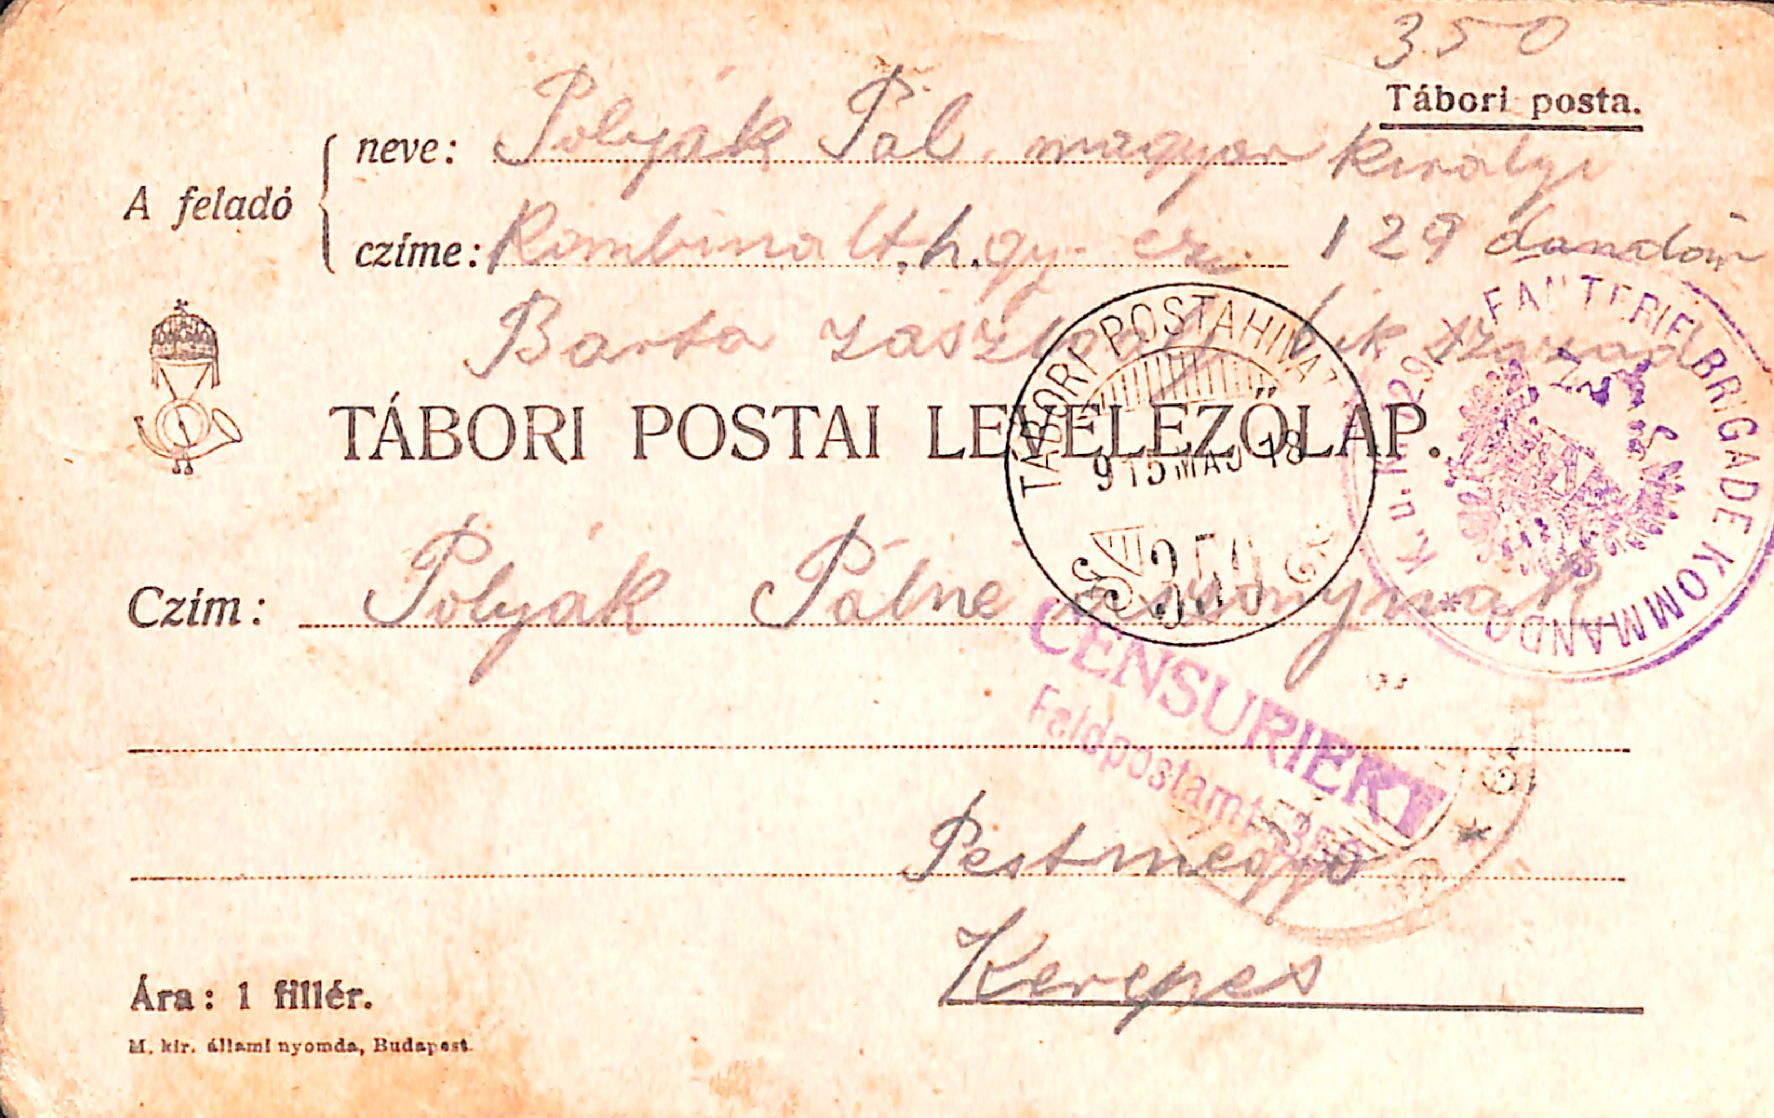 350
Tábori posta.
A feladó
neve: Polyák Pál. magyar királyi
czíme: Kombinalt. h. gy. ez. 129 dandár
Barta zászloalj 1ik század
TÁBORI POSTAHIVATAL
915 MÁJ 18
350
K.u.K. 129. INFANTERIE BRIGADE KOMMANDO *
TÁBORI POSTAI LEVELEZŐLAP.
Czím: Polyák Pálné asszonynak
CENSURIERT
Feldpostamt 350
Pestmegye
Kerepes
Ára: 1 fillér.
M. kir. állami nyomda, Budapest.